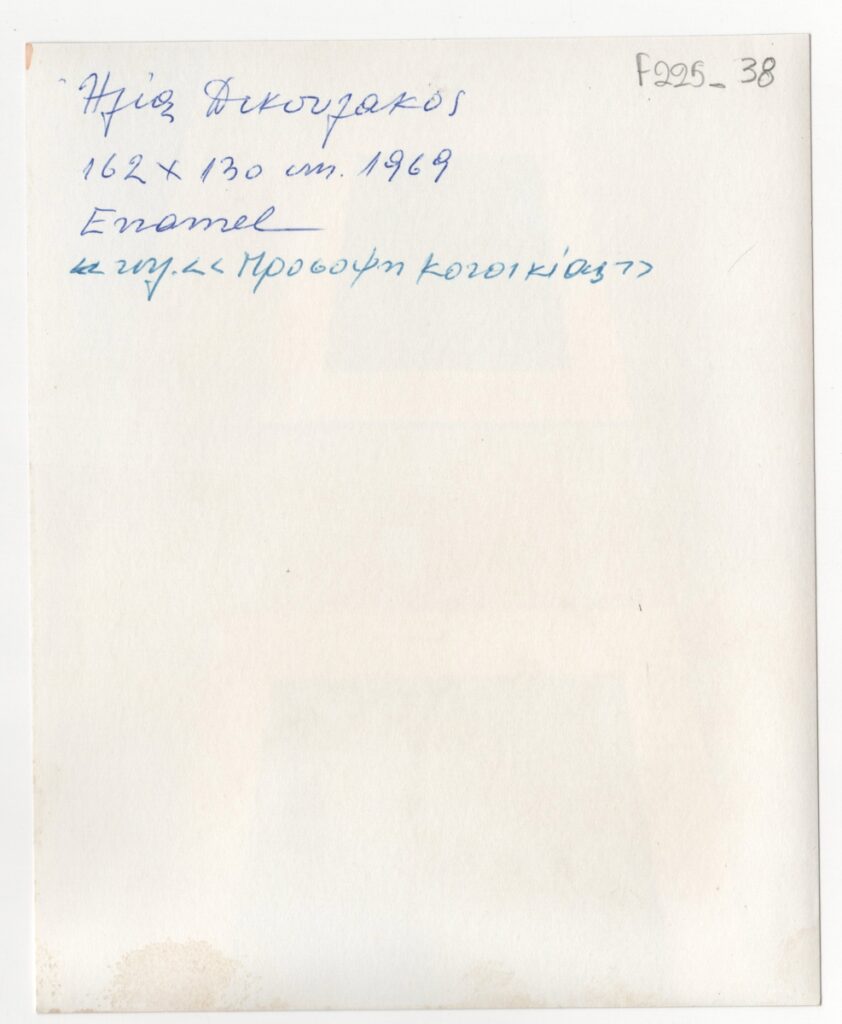 F225_38
Ἠλίας Δεκουλάκος
162 x 130 cm. 1969
Enamel
Πρόσοψη κατοικίας>>